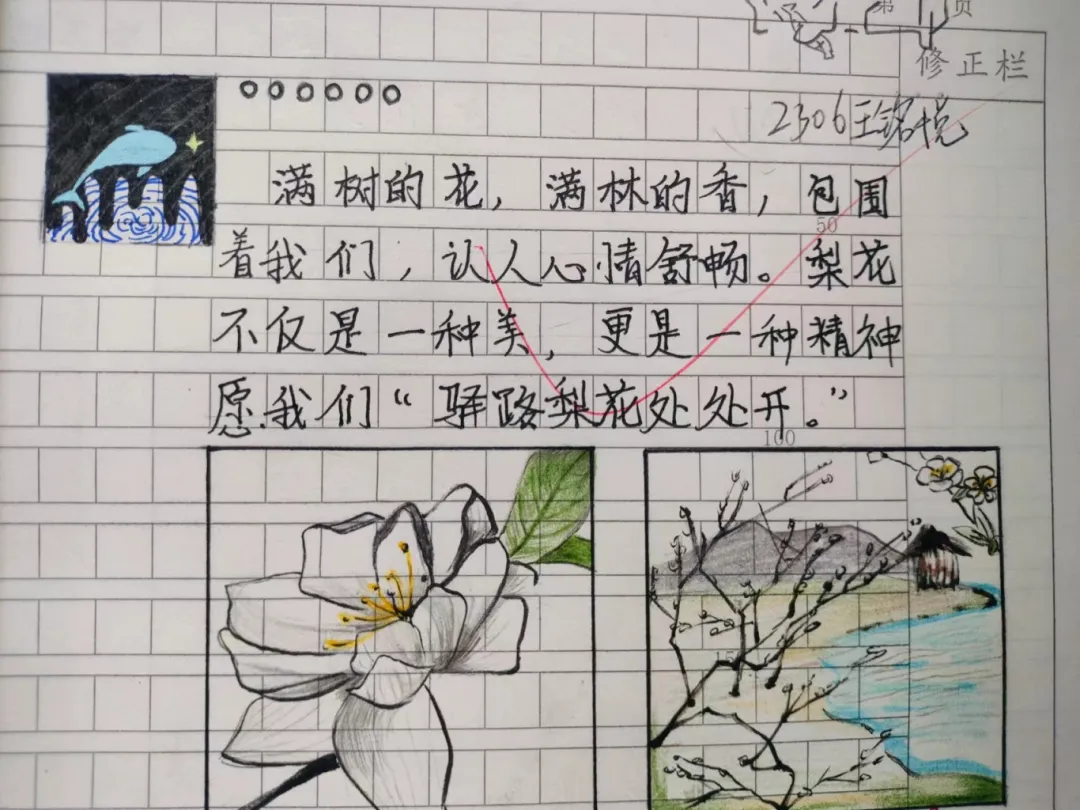 第 页
修正栏
2306王铭悦
满树的花，满林的香，包围
50
着我们，认人心情舒畅。梨花
不仅是一种美，更是一种精神
愿我们“驿路梨花处处开。”
100